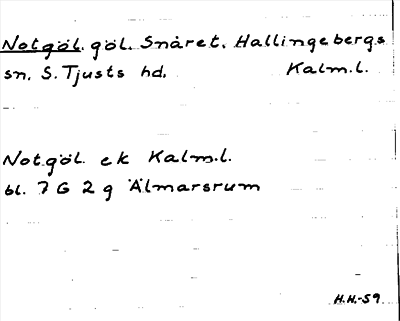 Notgöl. göl. Snåret. Hallingebergs
sn. S. Tjusts hd. Kalm.l.
Notgöl ek Kalm.l.
bl. 7 G 2 g Älmarsrum
H.H.-59